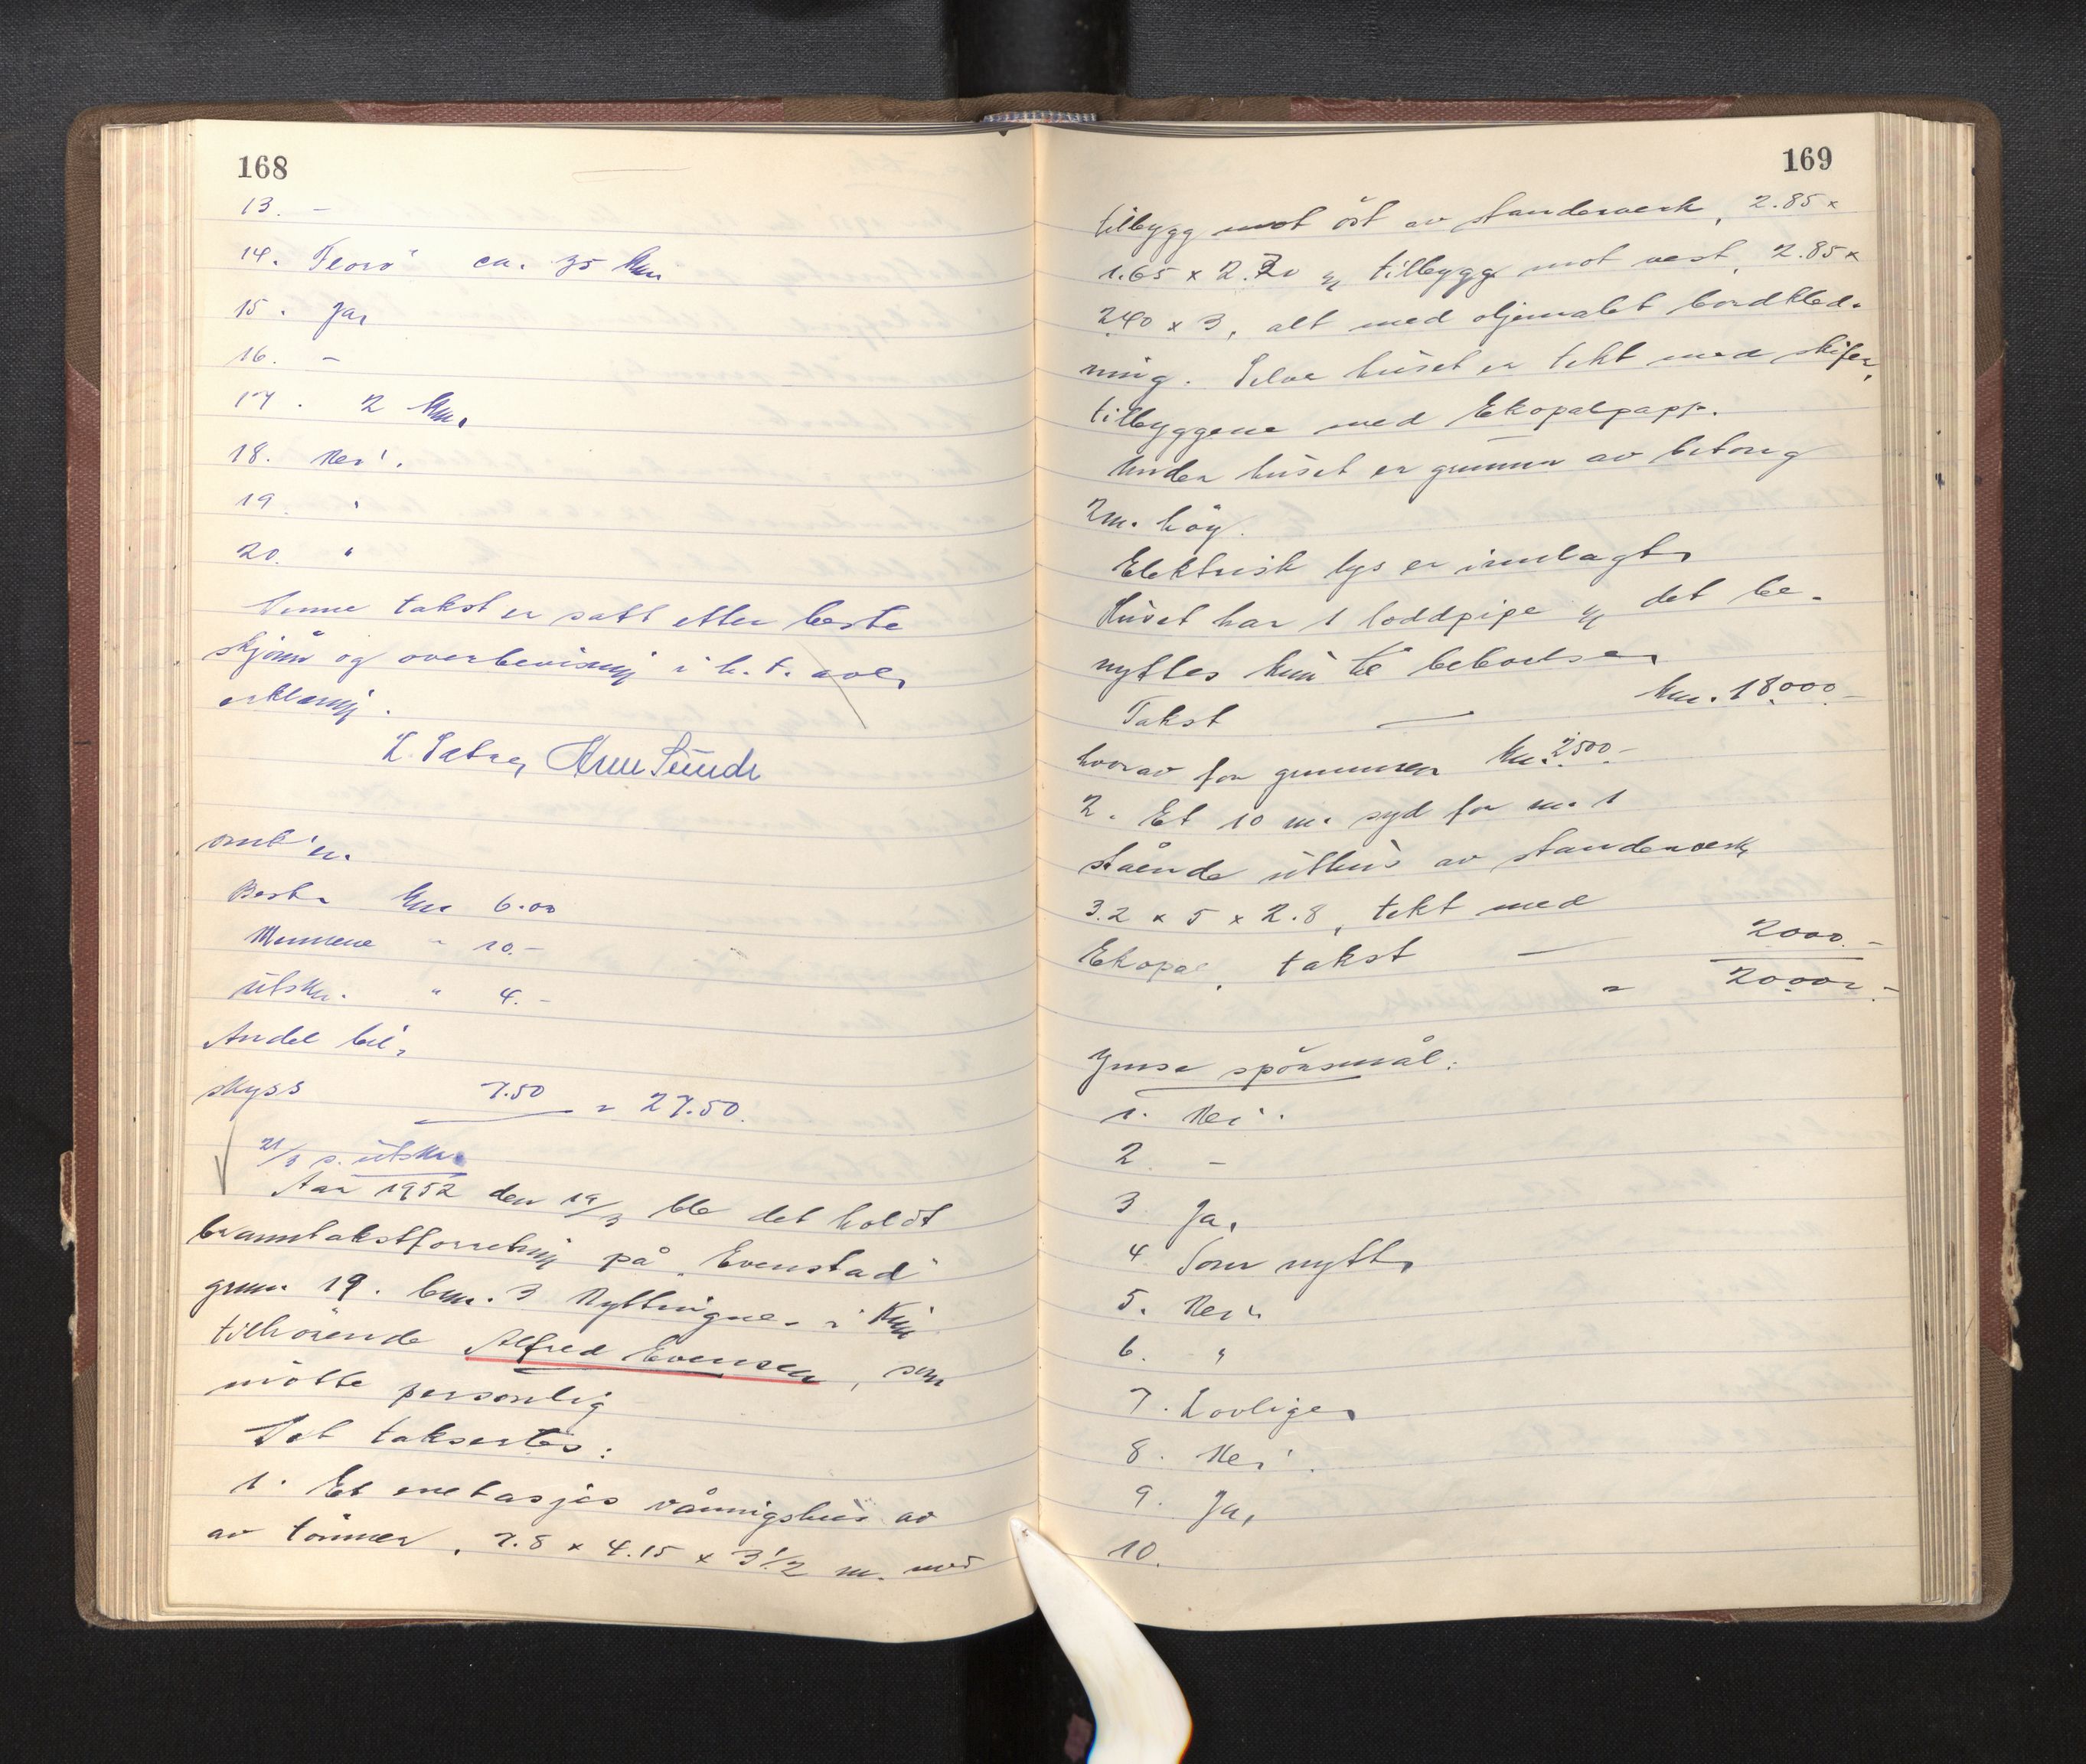 168
13. -
14. Florø ca. 35 km
15. Ja,
16. -
17. 2 km.
18. Nei.
19. "
20. "
Denne takst er satt etter beste
skjønn og overbevisning i h. t. avl.
erklæring.
L. Sætre, Arne Sunde
omk'en.
Best. Kr. 6.00
Mennene " 10.-
Utskr. " 4.-
Andel bil-
skyss 7.50 = 27.50.
21/3 s. utskr.
Aar 1952 den 19/3 ble det holdt
branntakstforretning på "Evenstad"
grnr. 19. bnr. 3 Nyttingnes i Kinn
tilhörende Alfred Evensen, som
mötte personlig
Det taksertes:
1. Et enetasjes våningshus av
av tömmer, 7.8 x 4.15 x 3 1/2 m. med
169
tilbygg mot öst av standerverk, 2.85 x
1.65 x 2.20 og tilbygg mot vest, 2.85 x
240 x 3, alt med oljemalet bordkled-
ning. Selve huset er tekt med skifer,
tilbyggene med Ekopalpapp.
Under huset er grunnmur av betong
2 m. höy.
Elektrisk lys er innlagt.
Huset har 1 loddpipe og det be-
nyttes kun til beboelse.
Takst — kr. 18.000.-
hvorav for grunnmuren kr. 2500.-
2. Et 10 m. syd for nr. 1
stående uthus av standerverk,
3.2 x 5 x 2.8, tekt med
Ekopal, takst — 2000.-
= 20.000.-
Ymse spörsmål:
1. Nei.
2. -
3 Ja,
4 Som nytt,
5. Nei.
6. "
7. Lovlige,
8. Nei.
9. Ja,
10.